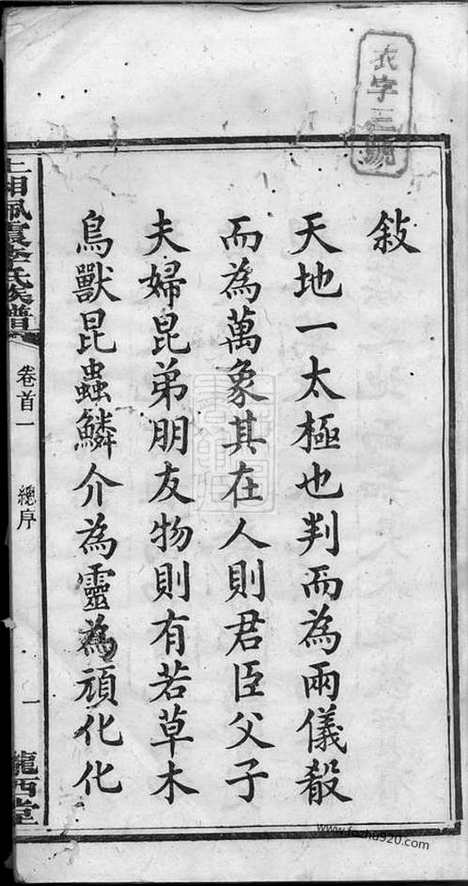 敍
天地一太極也判而為兩儀殽
而為萬象其在人則君臣父子
夫婦昆弟朋友物則有若草木
鳥獸昆蟲鱗介為靈為頑化化
上湘氏族譜
卷首一
總序
一
隴西堂
衣字三號
www.jiapu920.com